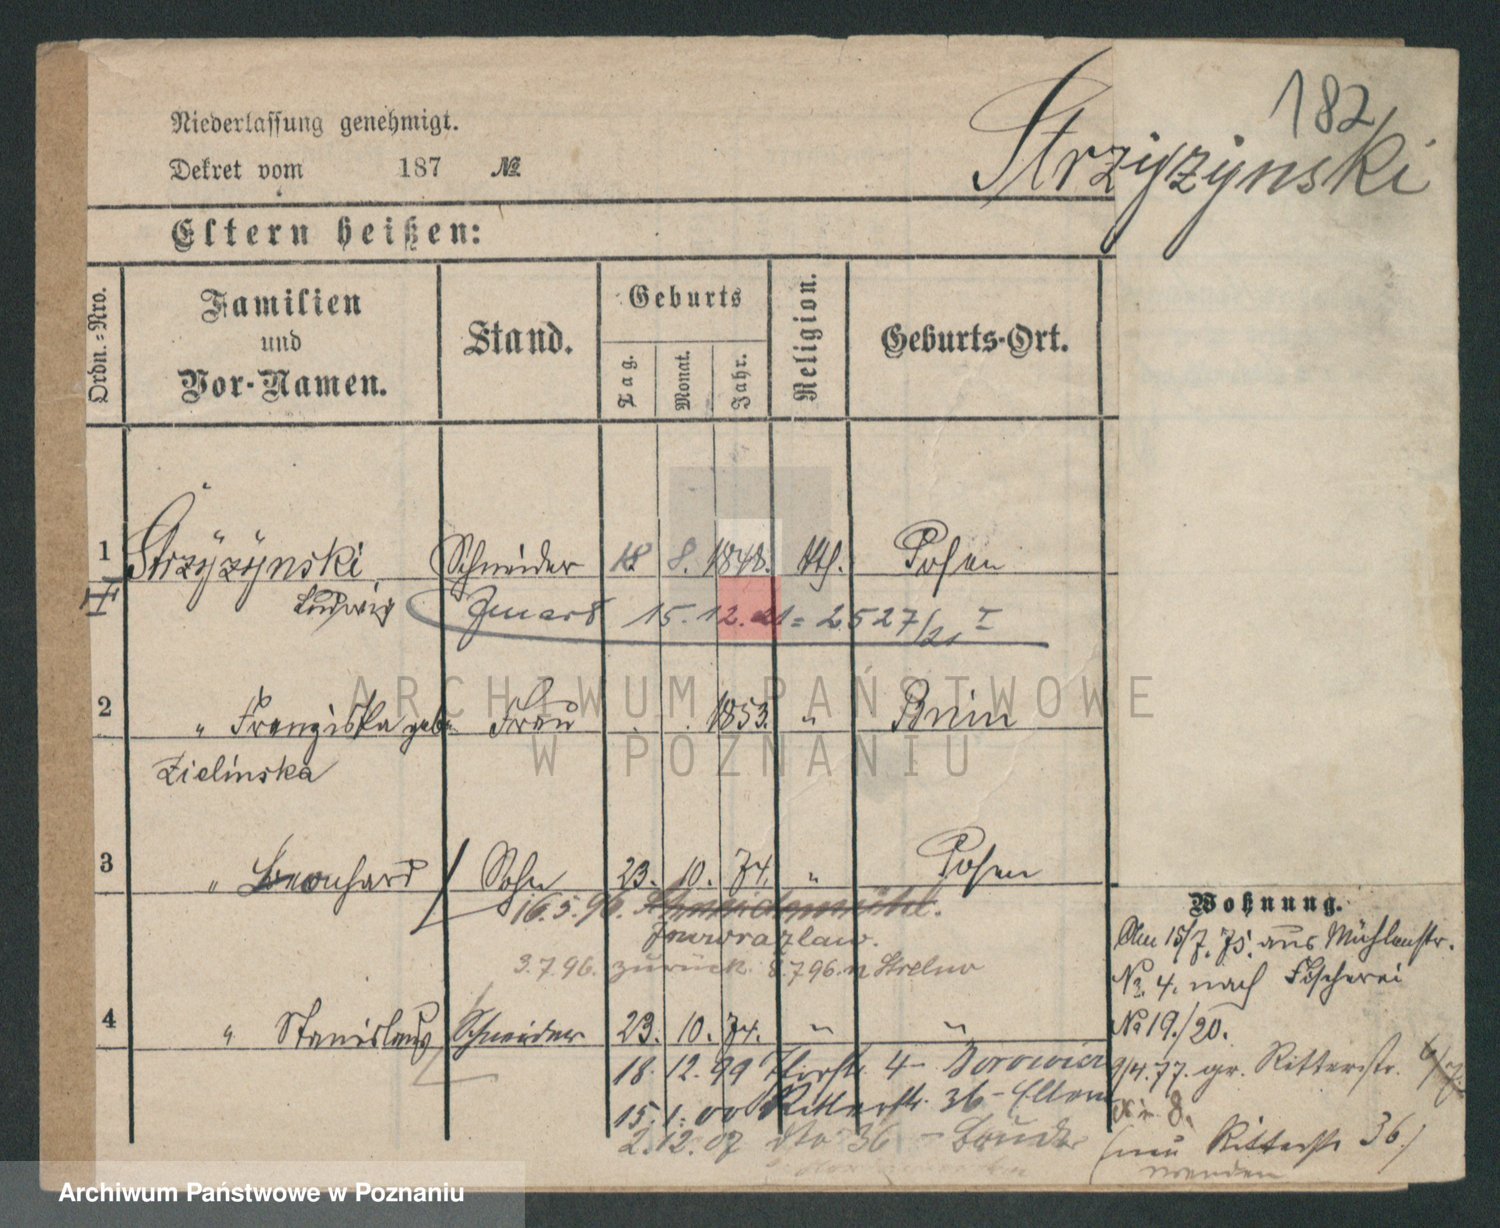 182
Strzyzynski
Niederlassung genehmigt.
Dekret vom 187 №
Eltern heißen:
Ordn.-Nro.
Familien
und
Vor-Namen.
Stand.
Geburts
Tag.
Monat.
Jahr.
Religion.
Geburts-Ort.
1 Strzyzynski Schneider 18. 8. 1848. kth. Posen
Ludwig 15. 12. 21 = 2527/21 I
2 " Franziska geb. Frau 1853. " Bnin
Zielinska
3 " Leonhard Sohn 23. 10. 74. " Posen
16.5.96. Schneidemühl.
Inowrazlaw.
3.7.96. zurück. 8.7.96. n Strelno
4 " Stanislaus Schneider 23. 10. 74. " "
18. 12. 99 4 -
15. 1. 00 Ritterstr. 36 - Eltern
2. 12. 07 dto 36 - Bruder
Wohnung.
Am 15/7. 75. aus Mühlenstr.
No. 4. nach Fischerei
No 19./20.
9/4. 77. gr. Ritterstr.
No 8.
(neu Ritterstr 36.)
werden
ARCHIWUM PAŃSTWOWE
W POZNANIU
Archiwum Państwowe w Poznaniu